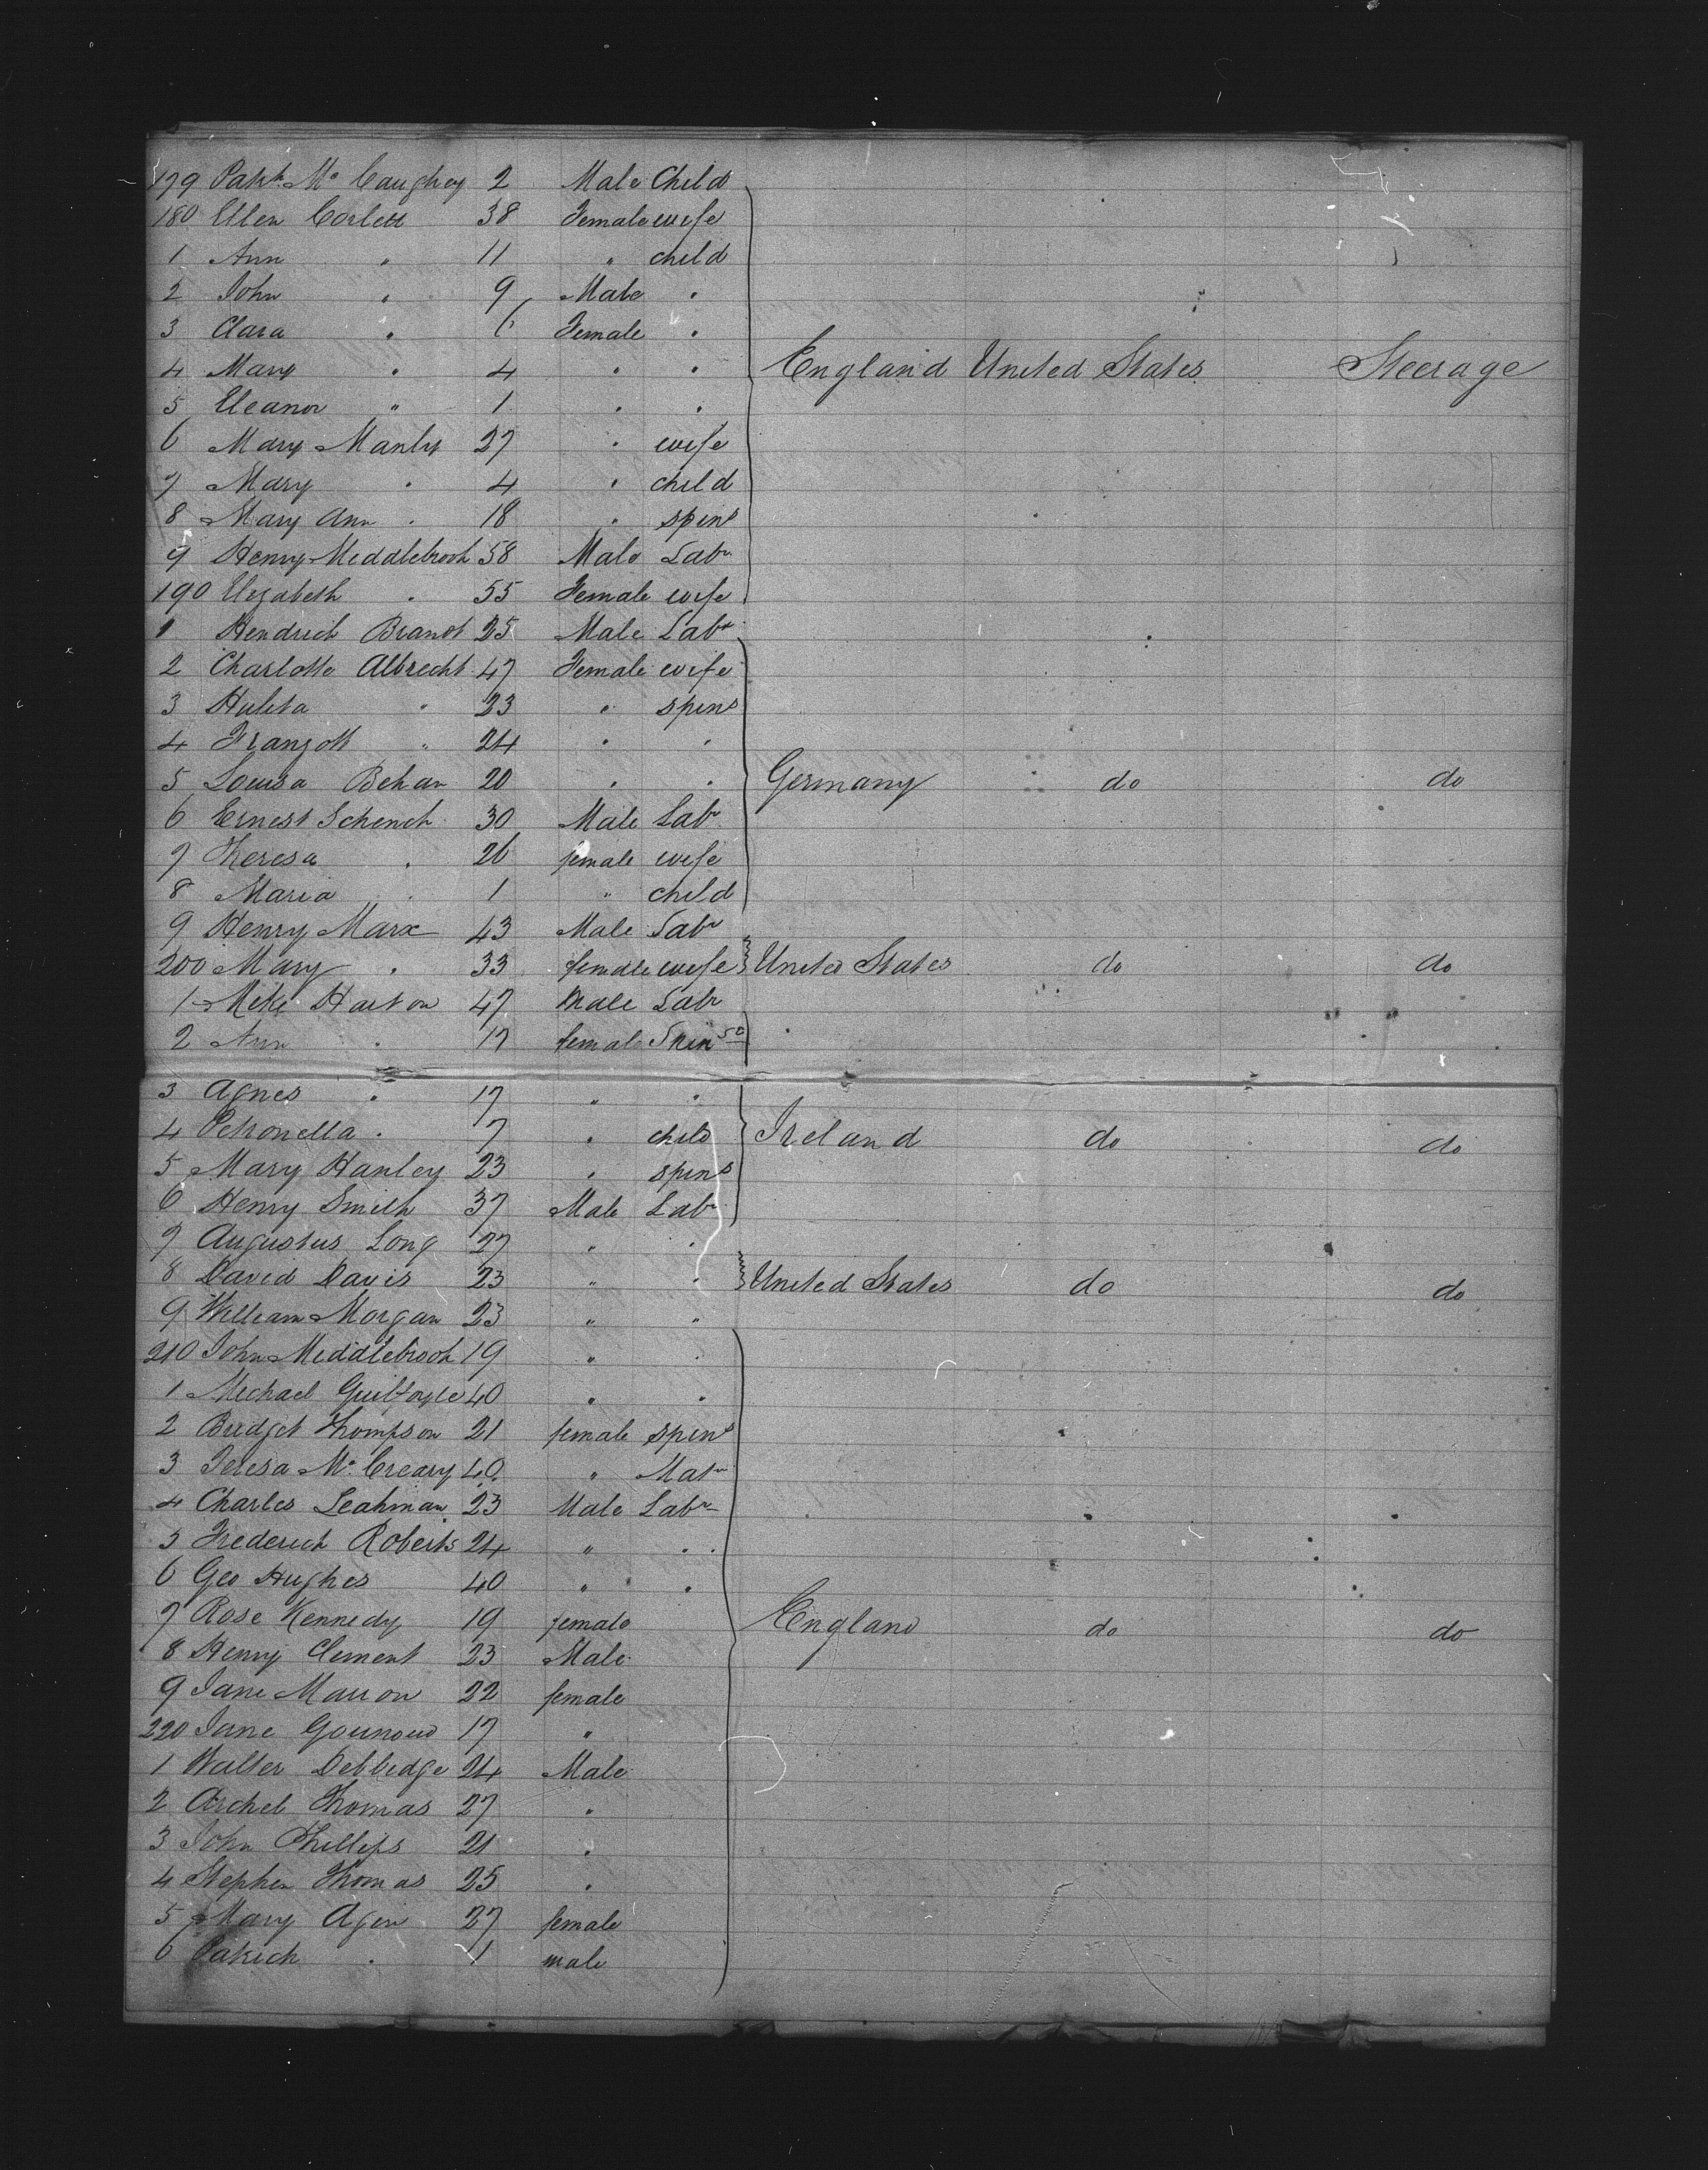 179 Patk Mc Caughey 2 Male Child
180 Ellen Corlett 38 Female wife
1 Ann " 11 " child
2 John " 9 Male "
3 Clara " 6 Female "
4 Mary " 4 " " England United States Steerage
5 Eleanor " 1 " "
6 Mary Manly 27 " wife
7 Mary " 4 " child
8 Mary Ann " 18 " spins
9 Henry Middlebrook 58 Male Labr
190 Elizabeth " 55 Female wife
1 Hendrich Brandt 25 Male Labr
2 Charlotte Albrecht 47 Female wife
3 " 23 " spins
4 " 24 " "
5 Louisa Behan 20 " " Germany do do
6 Ernest Schench 30 Male Labr
7 Theresa " 26 female wife
8 Maria " 1 " child
9 Henry Marx 43 Male Labr
200 Mary " 33 female wife United States do do
1 Mike Harton 47 Male Labr
2 Ann " 17 female Spinst
3 Agnes " 17 " "
4 Petronella " 7 " child Ireland do do
5 Mary Hanley 23 " spins
6 Henry Smith 37 Male Labr
7 Augustus Long 27 " "
8 David Davis 23 " " United States do do
9 William Morgan 23 " "
210 John Middlebrook 19 " "
1 Michael Guilfoyle 40 " "
2 Bridget Thompson 21 female spins
3 Teresa Mc Creary 40 " Matn
4 Charles Leahman 23 Male Labr
5 Frederich Roberts 24 " "
6 Geo Hughes 40 " "
7 Rose Kennedy 19 female England do do
8 Henry Clement 23 Male
9 Jane Marron 22 female
220 Jane 17 "
1 Walter Debbidge 24 Male
2 Archel Thomas 27 "
3 John Phillips 21 "
4 Stephen Thomas 25 "
5 Mary Agin 27 female
6 Patrick " 1 male